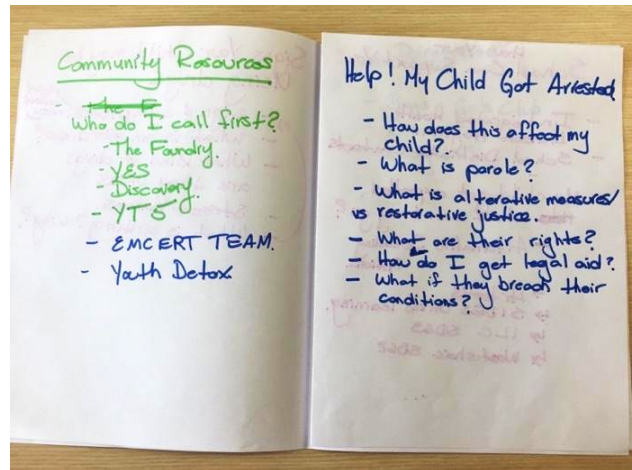 Community Resources
- The F
Who do I call first?
- The Foundry.
- YES
- Discovery.
- YTS
- EMCERT TEAM.
- Youth Detox
Help! My Child Got Arrested
- How does this affect my
child?
- What is parole?
- What is alterative measures/
vs restorative justice.
- What are their rights?
- How do I get legal aid?
- What if they breach their
conditions?